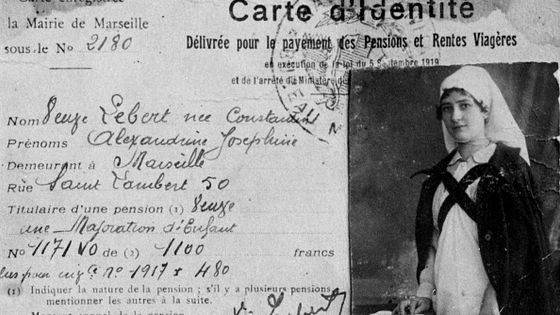 Carte enregistrée
la Mairie de Marseille
sous le No 2180
Carte d'Identité
Délivrée pour le payement des Pensions et Rentes Viagères
en exécution de la loi du 5 Septembre 1919
et de l'arrêté du Ministère de
Nom Veuve Lebert née Constantin
Prénoms Alexandrine Joséphine
Demeurant à Marseille
Rue Saint Lambert 50
Titulaire d'une pension (1) Veuve
une Majoration d'Enfant
No (3) 1100 francs
No 1917 480
(1) Indiquer la nature de la pension ; s'il y a plusieurs pensions,
mentionner les autres à la suite.